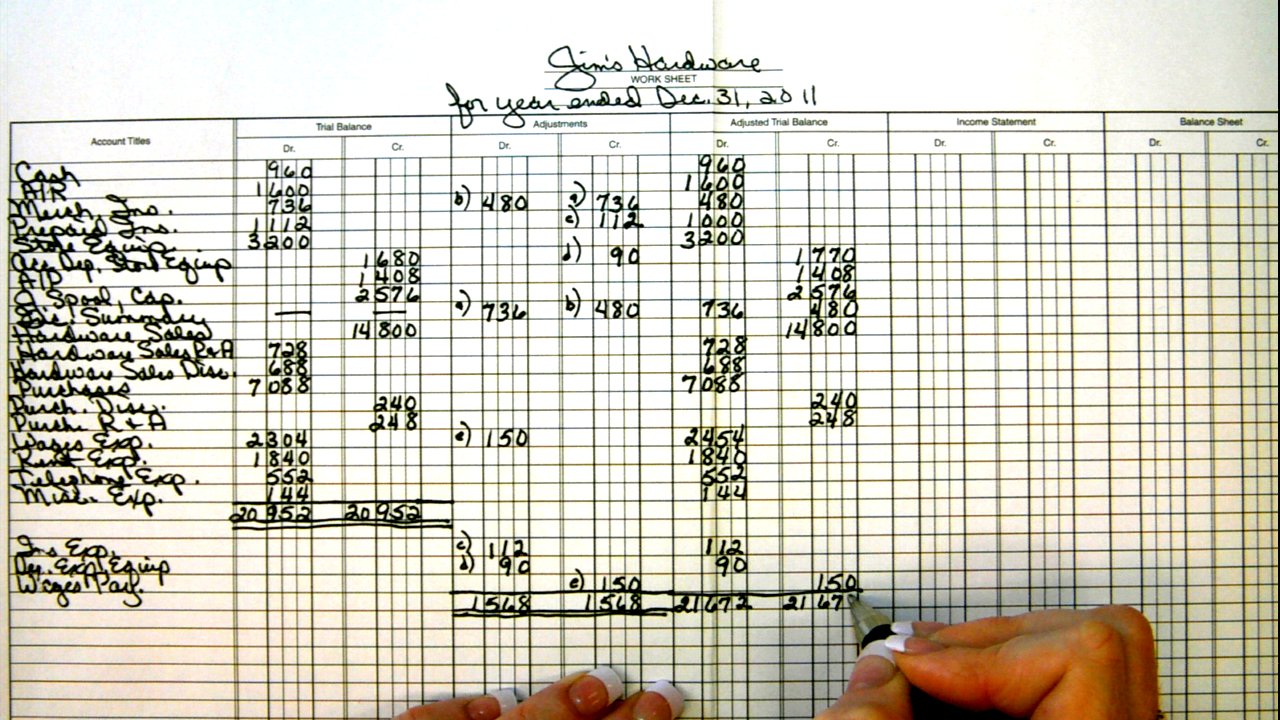 Jim's Hardware
WORK SHEET
for year ended Dec. 31, 2011
Account Titles Trial Balance Adjustments Adjusted Trial Balance Income Statement Balance Sheet
Dr. Cr. Dr. Cr. Dr. Cr. Dr. Cr. Dr. Cr.
Cash 960 960
A/R 1600 1600
Merch. Ins. 736 b) 480 a) 736 480
Prepaid Ins. 1112 c) 112 1000
Store Equip. 3200 3200
Acc. Dep. Store Equip 1680 d) 90 1770
A/P 1408 1408
J. Spool, Cap. 2576 2576
Summary — — a) 736 b) 480 736 480
Hardware Sales 14800 14800
Hardware Sales R&A 728 728
Hardware Sales Disc. 688 688
Purchases 7088 7088
Purch. Disc. 240 240
Purch. R & A 248 248
Wages Exp. 2304 e) 150 2454
Rent Exp. 1840 1840
Telephone Exp. 552 552
Misc. Exp. 144 144
20952 20952
Ins Exp. c) 112 112
Dep. Exp. Equip d) 90 90
Wages Pay. e) 150 150
1568 1568 21672 2167